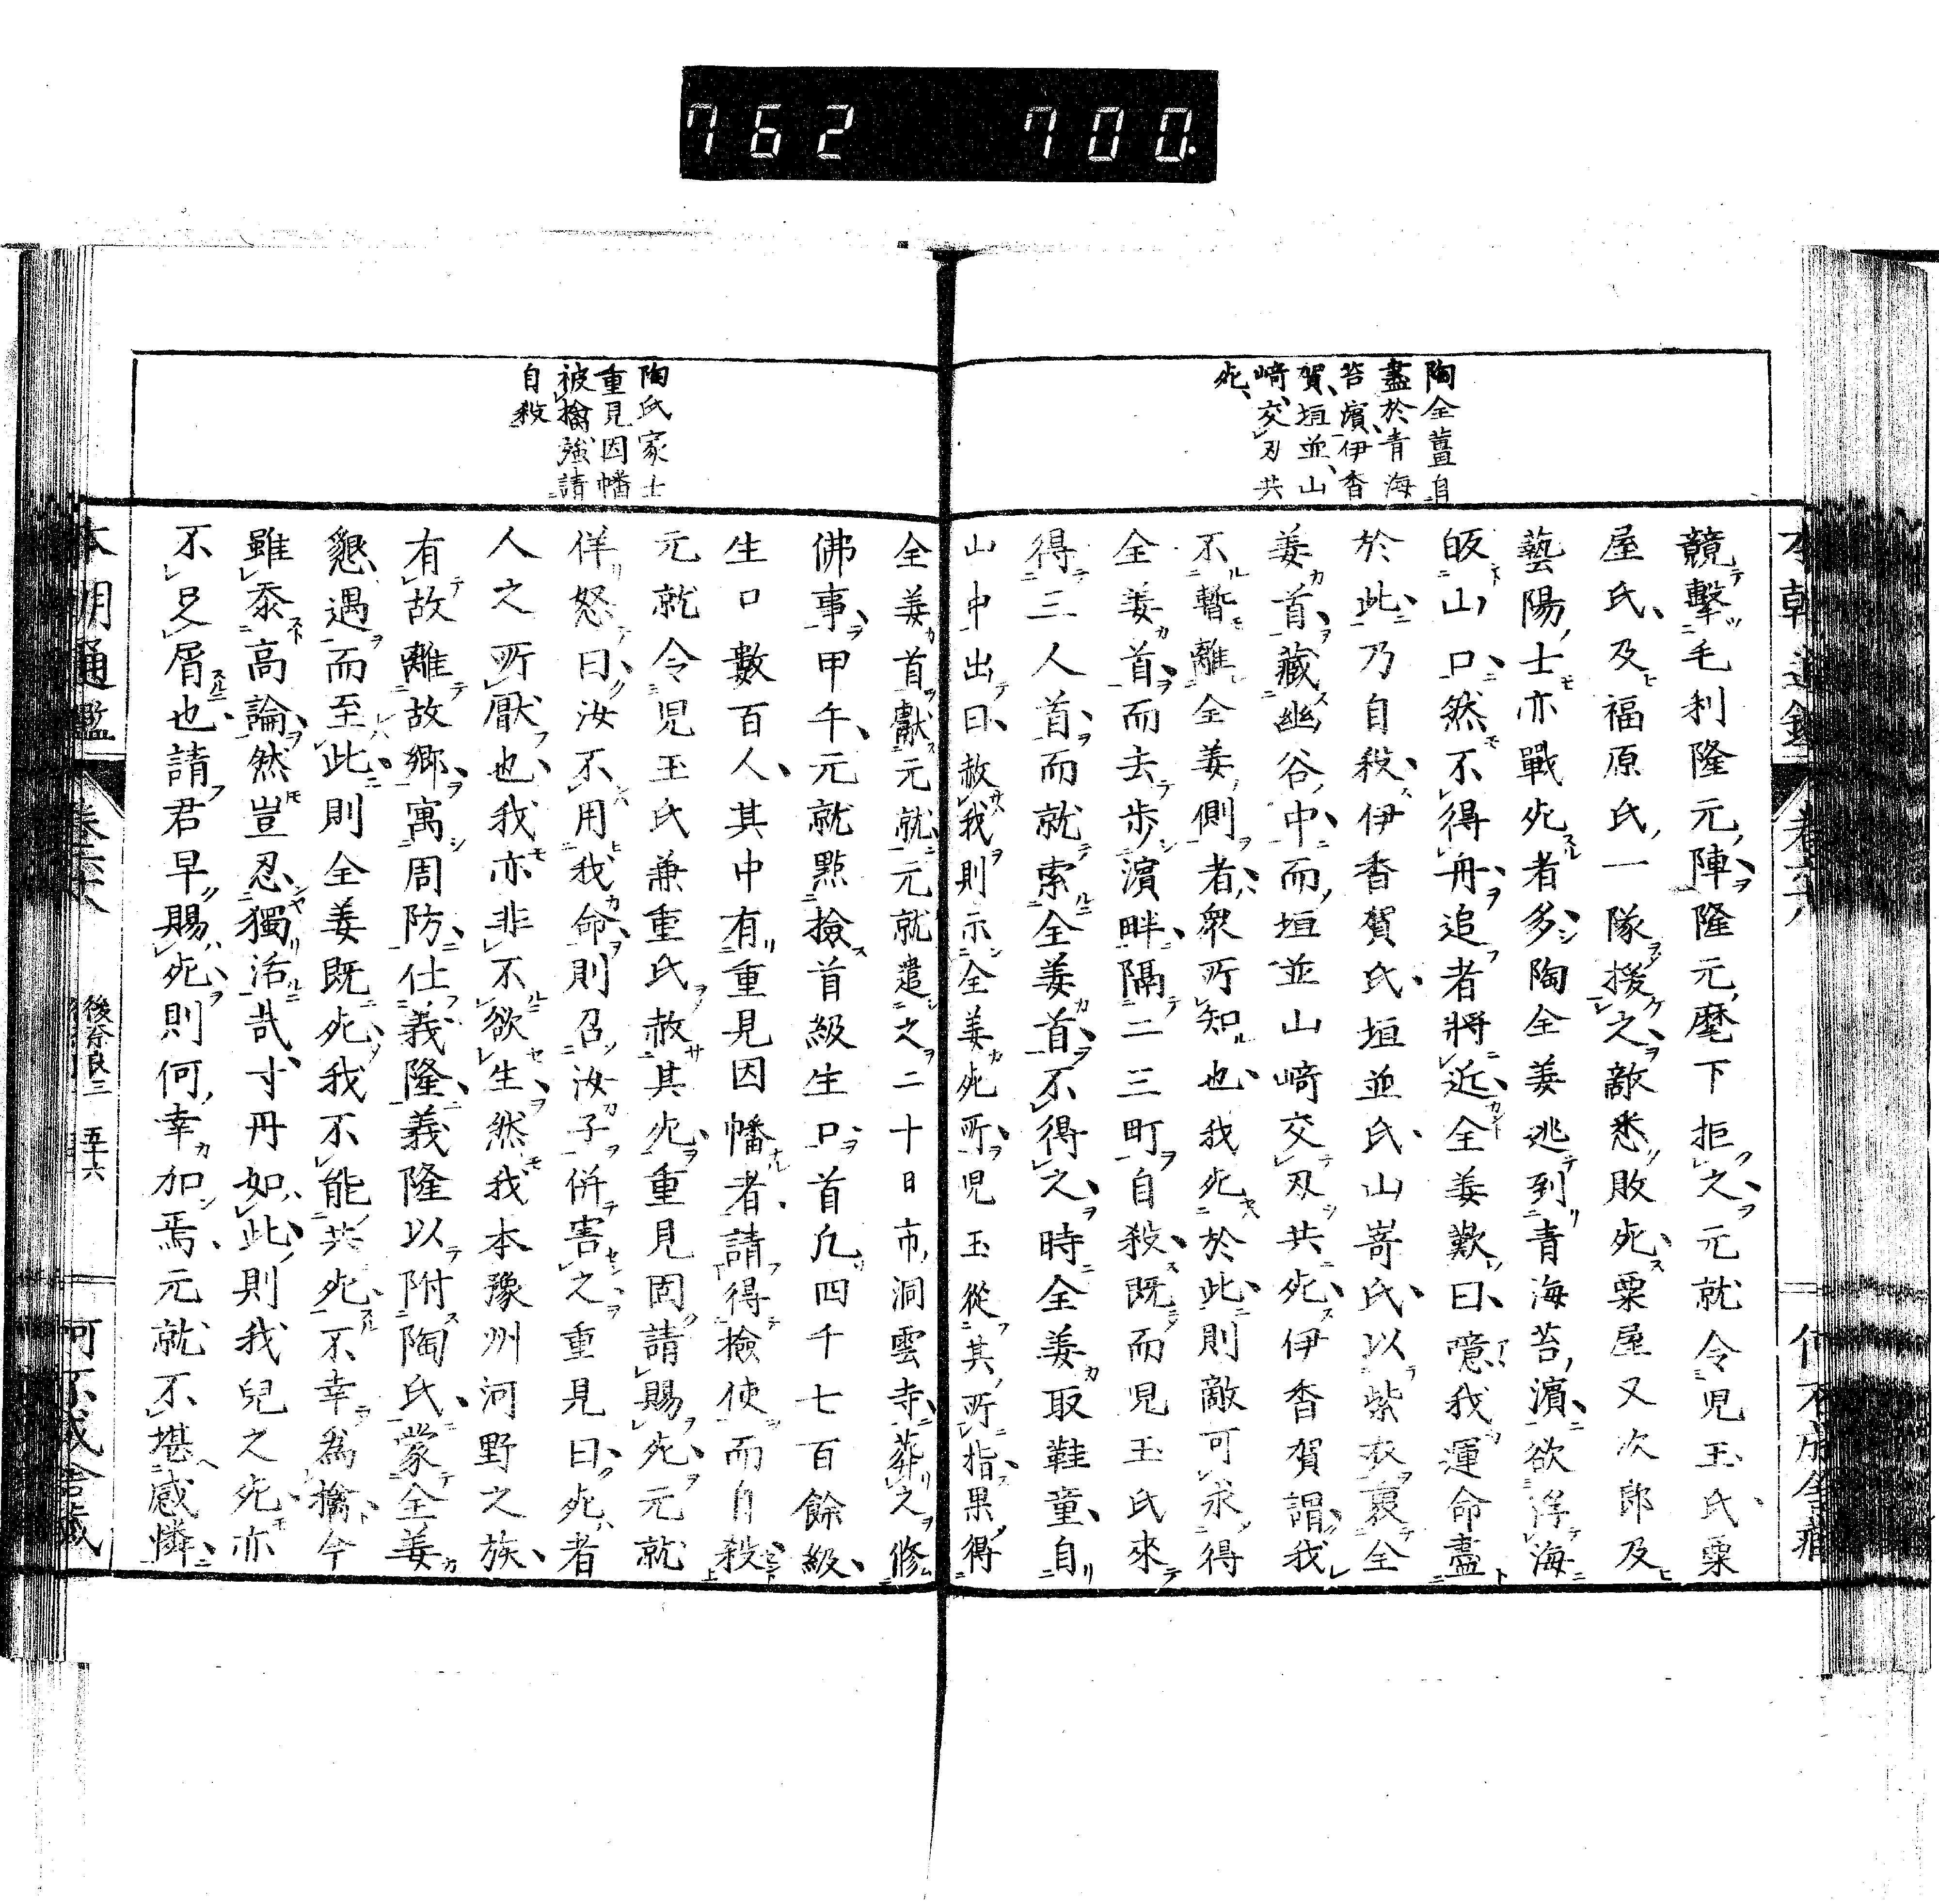 762 700.
陶全薑自
盡於青海
苔濱伊香
賀垣並山
﨑交刃共
死
競擊毛利隆元陣隆元麾下拒之元就令児玉氏粟
屋氏及福原氏一隊援之敵悉敗死粟屋又次郎及
藝陽士亦戰死者多陶全姜逃到青海苔濱欲浮海
皈山口然不得舟追者將近全姜歎曰噫我運命盡
於此乃自殺伊香賀氏垣並氏山嵜氏以紫衣裹全
姜首藏幽谷中而垣並山﨑交刃共死伊香賀謂我
不暫離全姜側者衆所知也我死於此則敵可求得
全姜首而去步濱畔隔二三町自殺既而児玉氏來
得三人首而就索全姜首不得之時全姜取鞋童自
山中出曰赦我則示全姜死所児玉從其所指果得
陶氏家士
重見因幡
被擒強請
自殺
全姜首獻元就元就遣之二十日市洞雲寺葬之修
佛事甲午元就點撿首級生口首凡四千七百餘級
生口數百人其中有重見因幡者請得撿使而自殺
元就令児玉氏兼重氏赦其死重見固請賜死元就
佯怒曰汝不用我命則召汝子併害之重見曰死者
人之所厭也我亦非不欲生然我本豫州河野之族
有故離故鄉寓周防仕義隆義隆以附陶氏蒙全姜
懇遇而至此則全姜既死我不能共死不幸為擒今
雖忝高論然豈忍獨活哉寸丹如此則我兒之死亦
不足屑也請君早賜死則何幸加焉元就不堪感憐
本朝通鑑 卷六十八 後奈良三 五十六